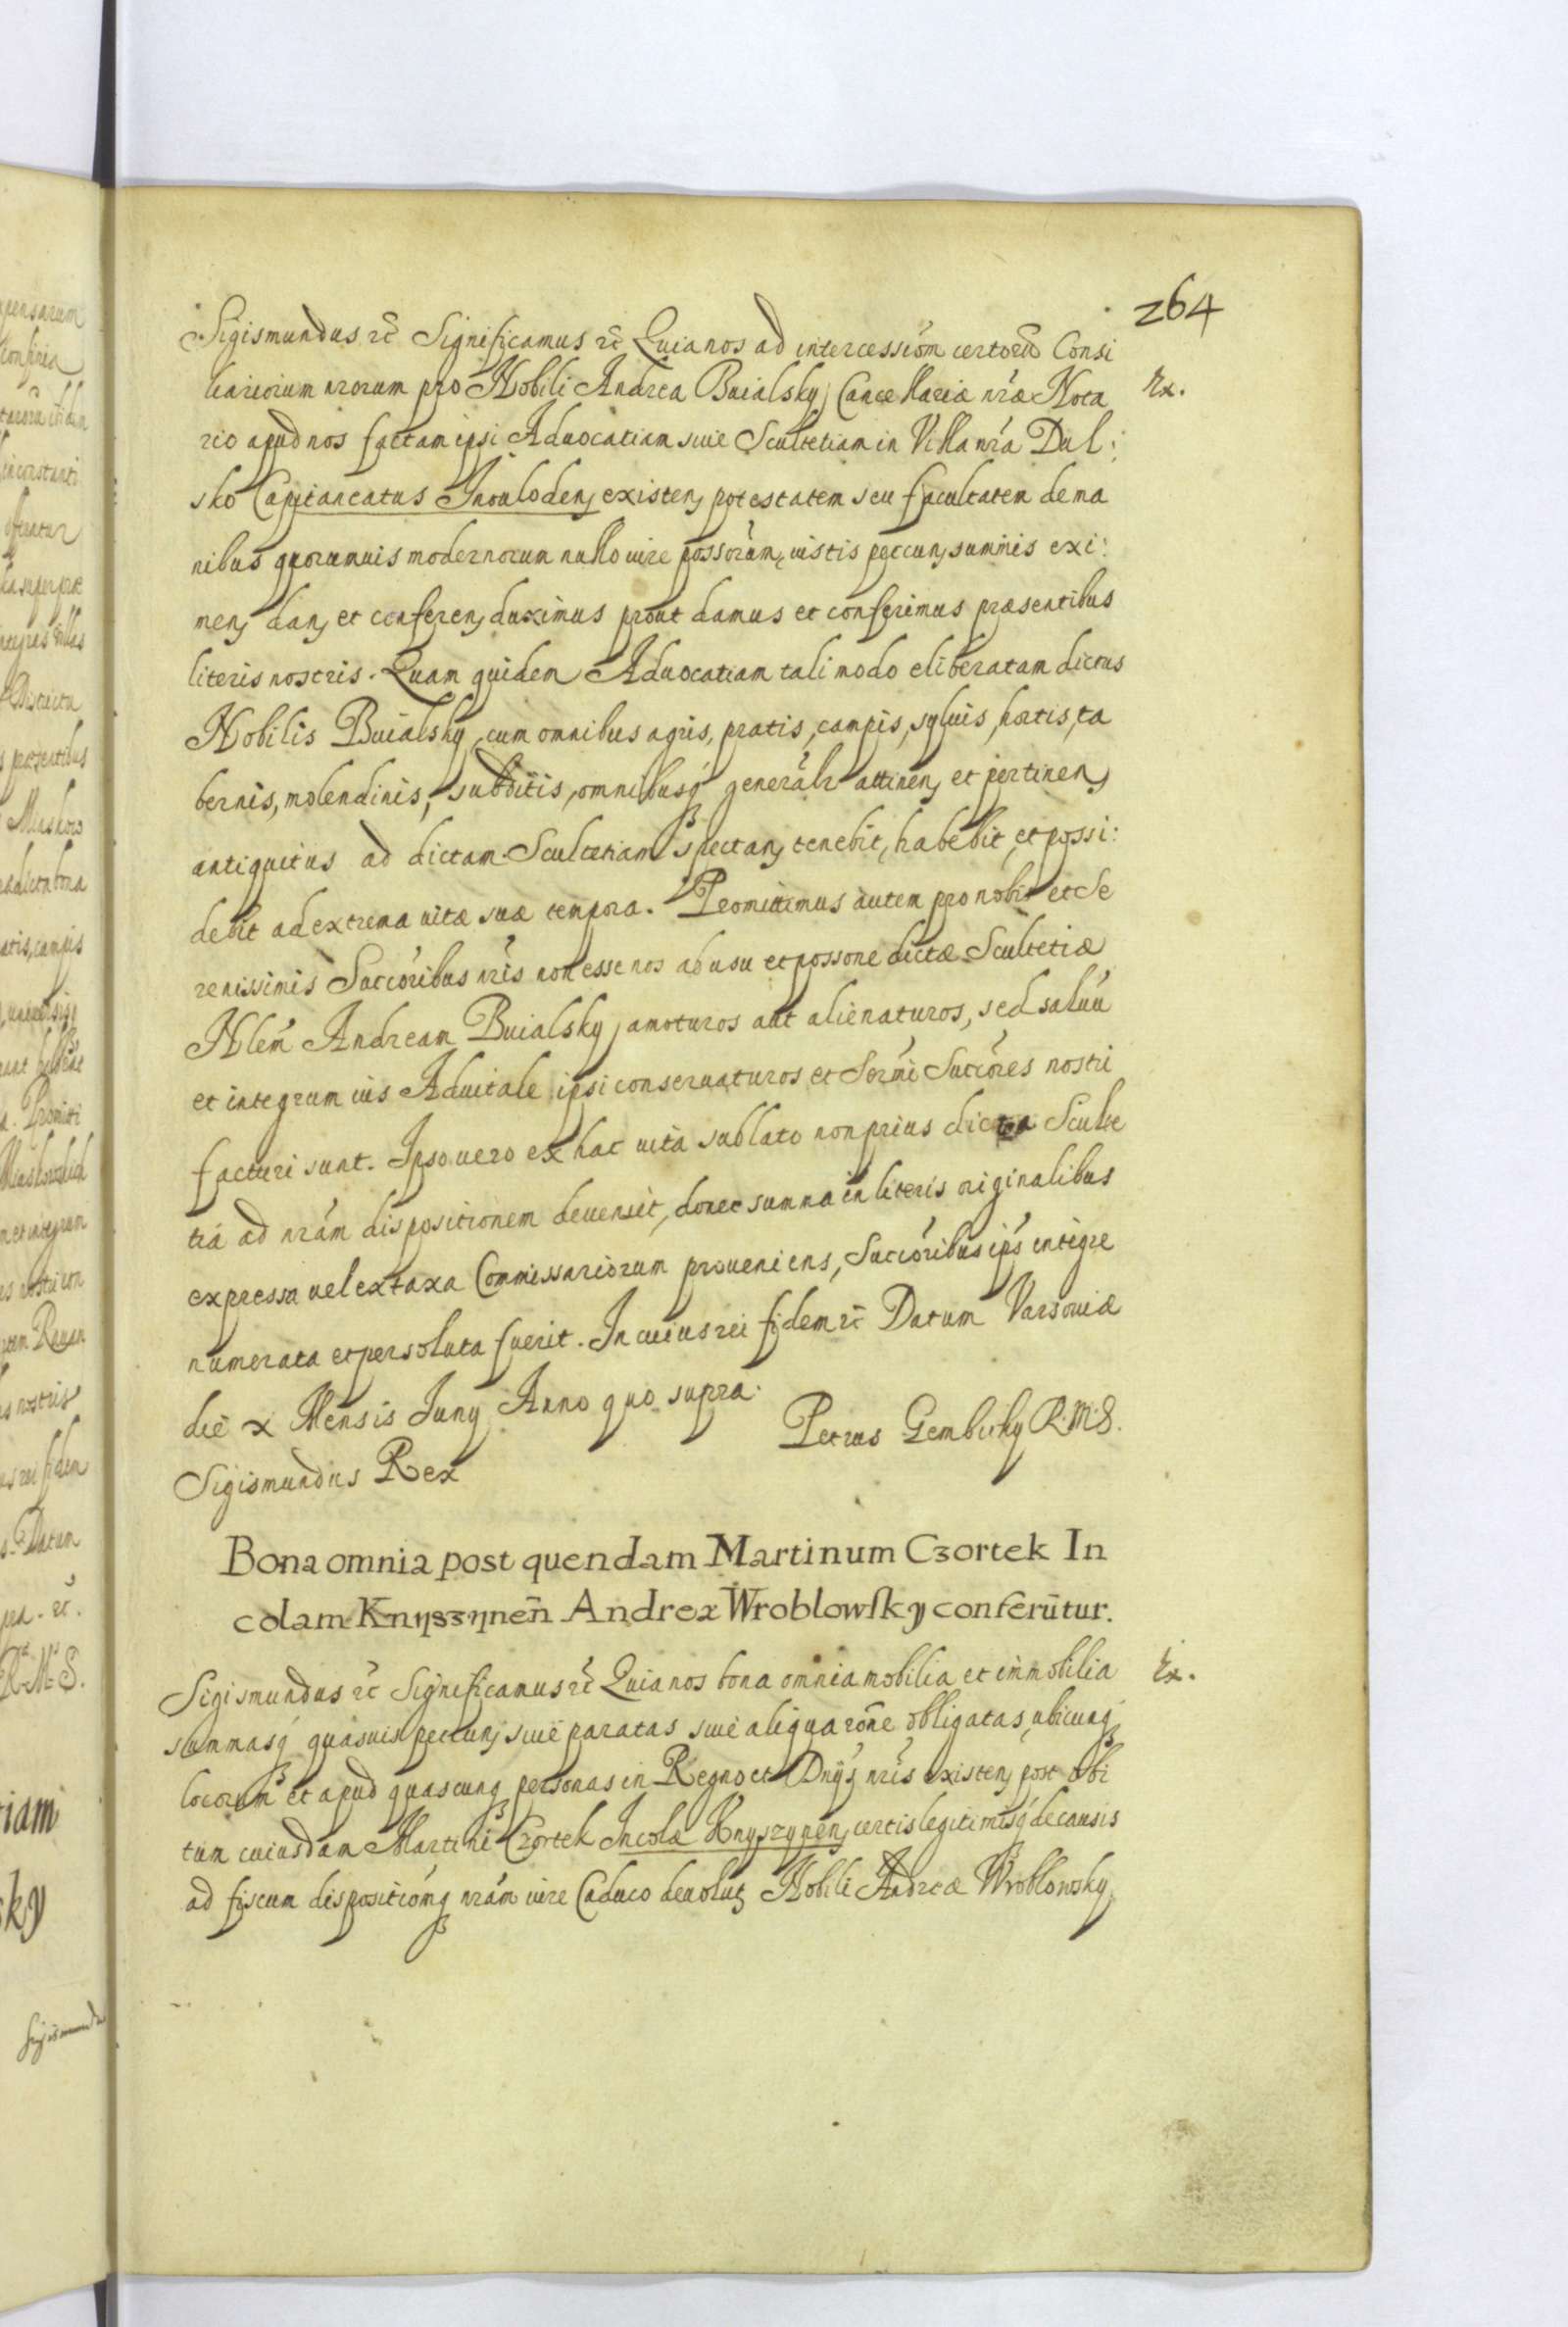 264
Sigismundus etc̃ Significamus etc̃ Quia nos ad intercessiõm certorũ Consi
liariorum nrorum pro Nobili Andrea Buialsky Cancellariæ nræ Nota
Ex.
rio apud nos factam ipsi Aduocatiam siue Scultetiam in Villa nrã Dul:
sko Capitaneatus Inoulodeñ existeñ potestatem seu facultatem de ma
nibus quorumuis modernorum nullo iure possorum, iustis pecuñ summis exi:
meñ dañ et confereñ duximus prout damus et conferimus præsentibus
literis nostris. Quam quidem Aduocatiam tali modo eliberatam dictus
Nobilis Buialsky, cum omnibus agris, pratis, campis, syluis, hortis, ta
bernis, molendinis, subditis, omnibusq́ generalr attineñ et pertineñ
antiquitus ad dictam Scultetiam spectañ tenebit, habebit, et possi:
debit ad extrema uitæ suæ tempora. Promittimus autem pro nobis et Se
renissimis Succoribus nris non esse nos ab usu et possone dictæ Scultetiæ
Nlem̃ Andream Buialsky amoturos aut alienaturos, sed saluũ
et integrum ius Aduitale ipsi conseruaturos et Sermi Succores nostri
facturi sunt. Ipso uero ex hac uita sublato non prius dicta Sculte
tiá ad nrám dispositionem deueniet, donec summa in literis originalibus
expressa uel ex taxa Commissariorum proueniens, Succoribus ips integre
numerata et persoluta fuerit. In cuius rei fidem etc̃ Datum Varsouiæ
die x Mensis Iuny Anno quo supra.
Petrus Gembicky R.M.S.
Sigismundus Rex
Bona omnia post quendam Martinum Czortek In
colam Knyszyneñ Andreæ Wroblowsky conferũtur.
Sigismundus etc̃ Significamus etc̃ Quia nos bona omnia mobilia et immobilia
Ex.
summasq́ quasuis pecuñ siue paratas siue aliqua rõne obligatas, ubicunq́
locorum et apud quascunq personas in Regno et Dnijs nris existeñ post obi
tum cuiusdam Martini Czortek Incolæ Knyszyneñ certis legitimisq́ de causis
ad fiscum dispositiómq nrám iure Caduco deuolut Nobili Andreæ Wroblowsky